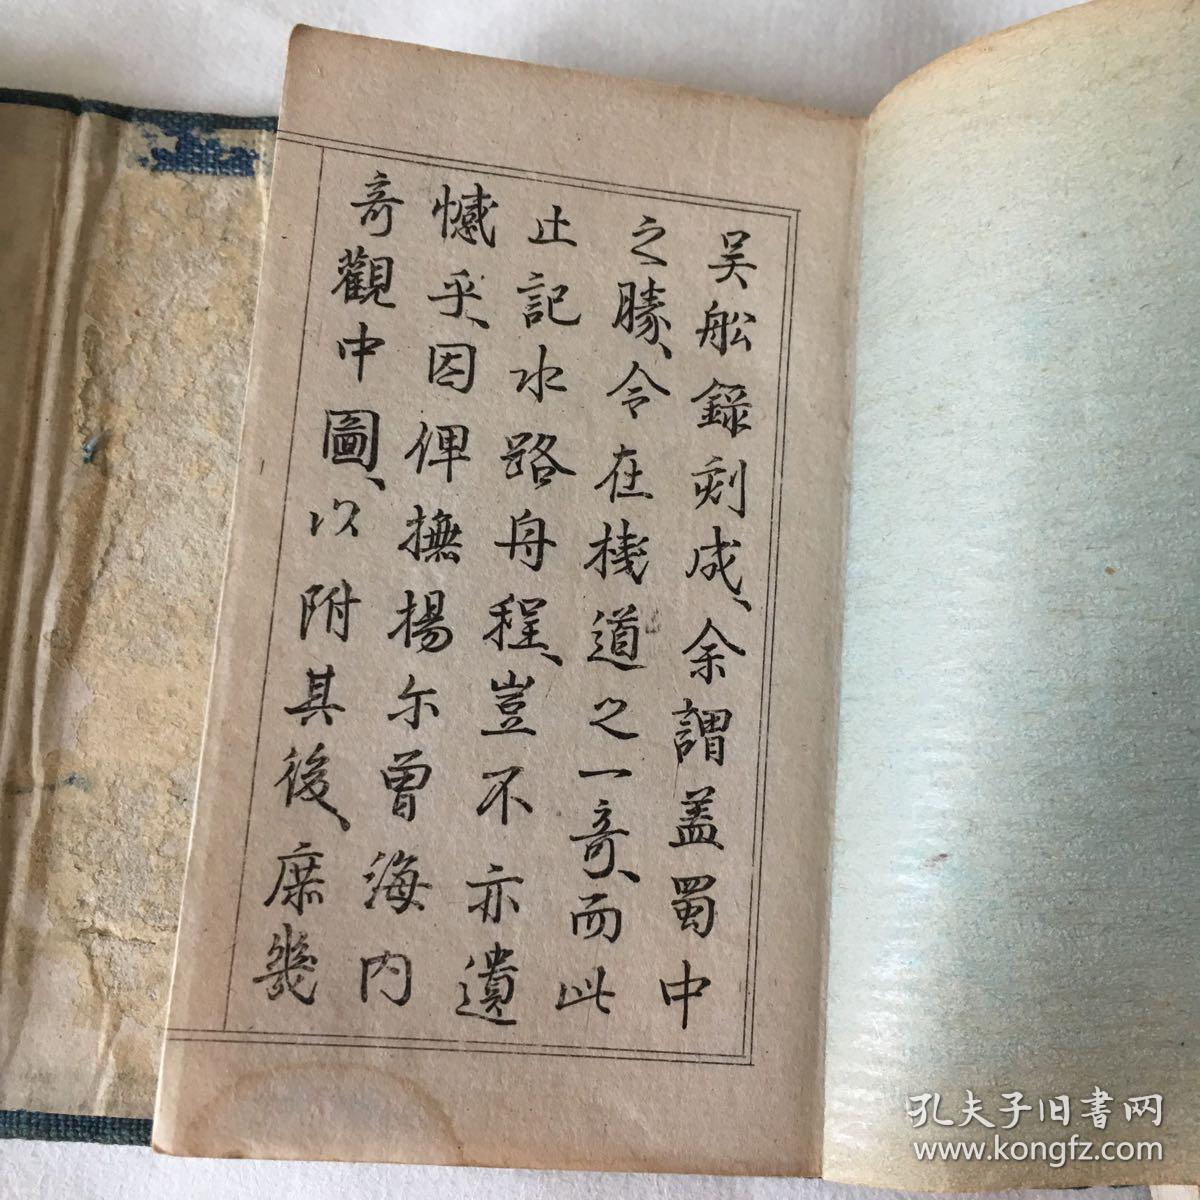 吴舩錄刻成、余謂盖蜀中
之勝、令在棧道之一竒、而此
止記水路舟程、豈不亦遺
憾乎、因俾撫楊尓曾海内
竒觀中圖、以附其後、庶幾
孔夫子旧書网
www.kongfz.com